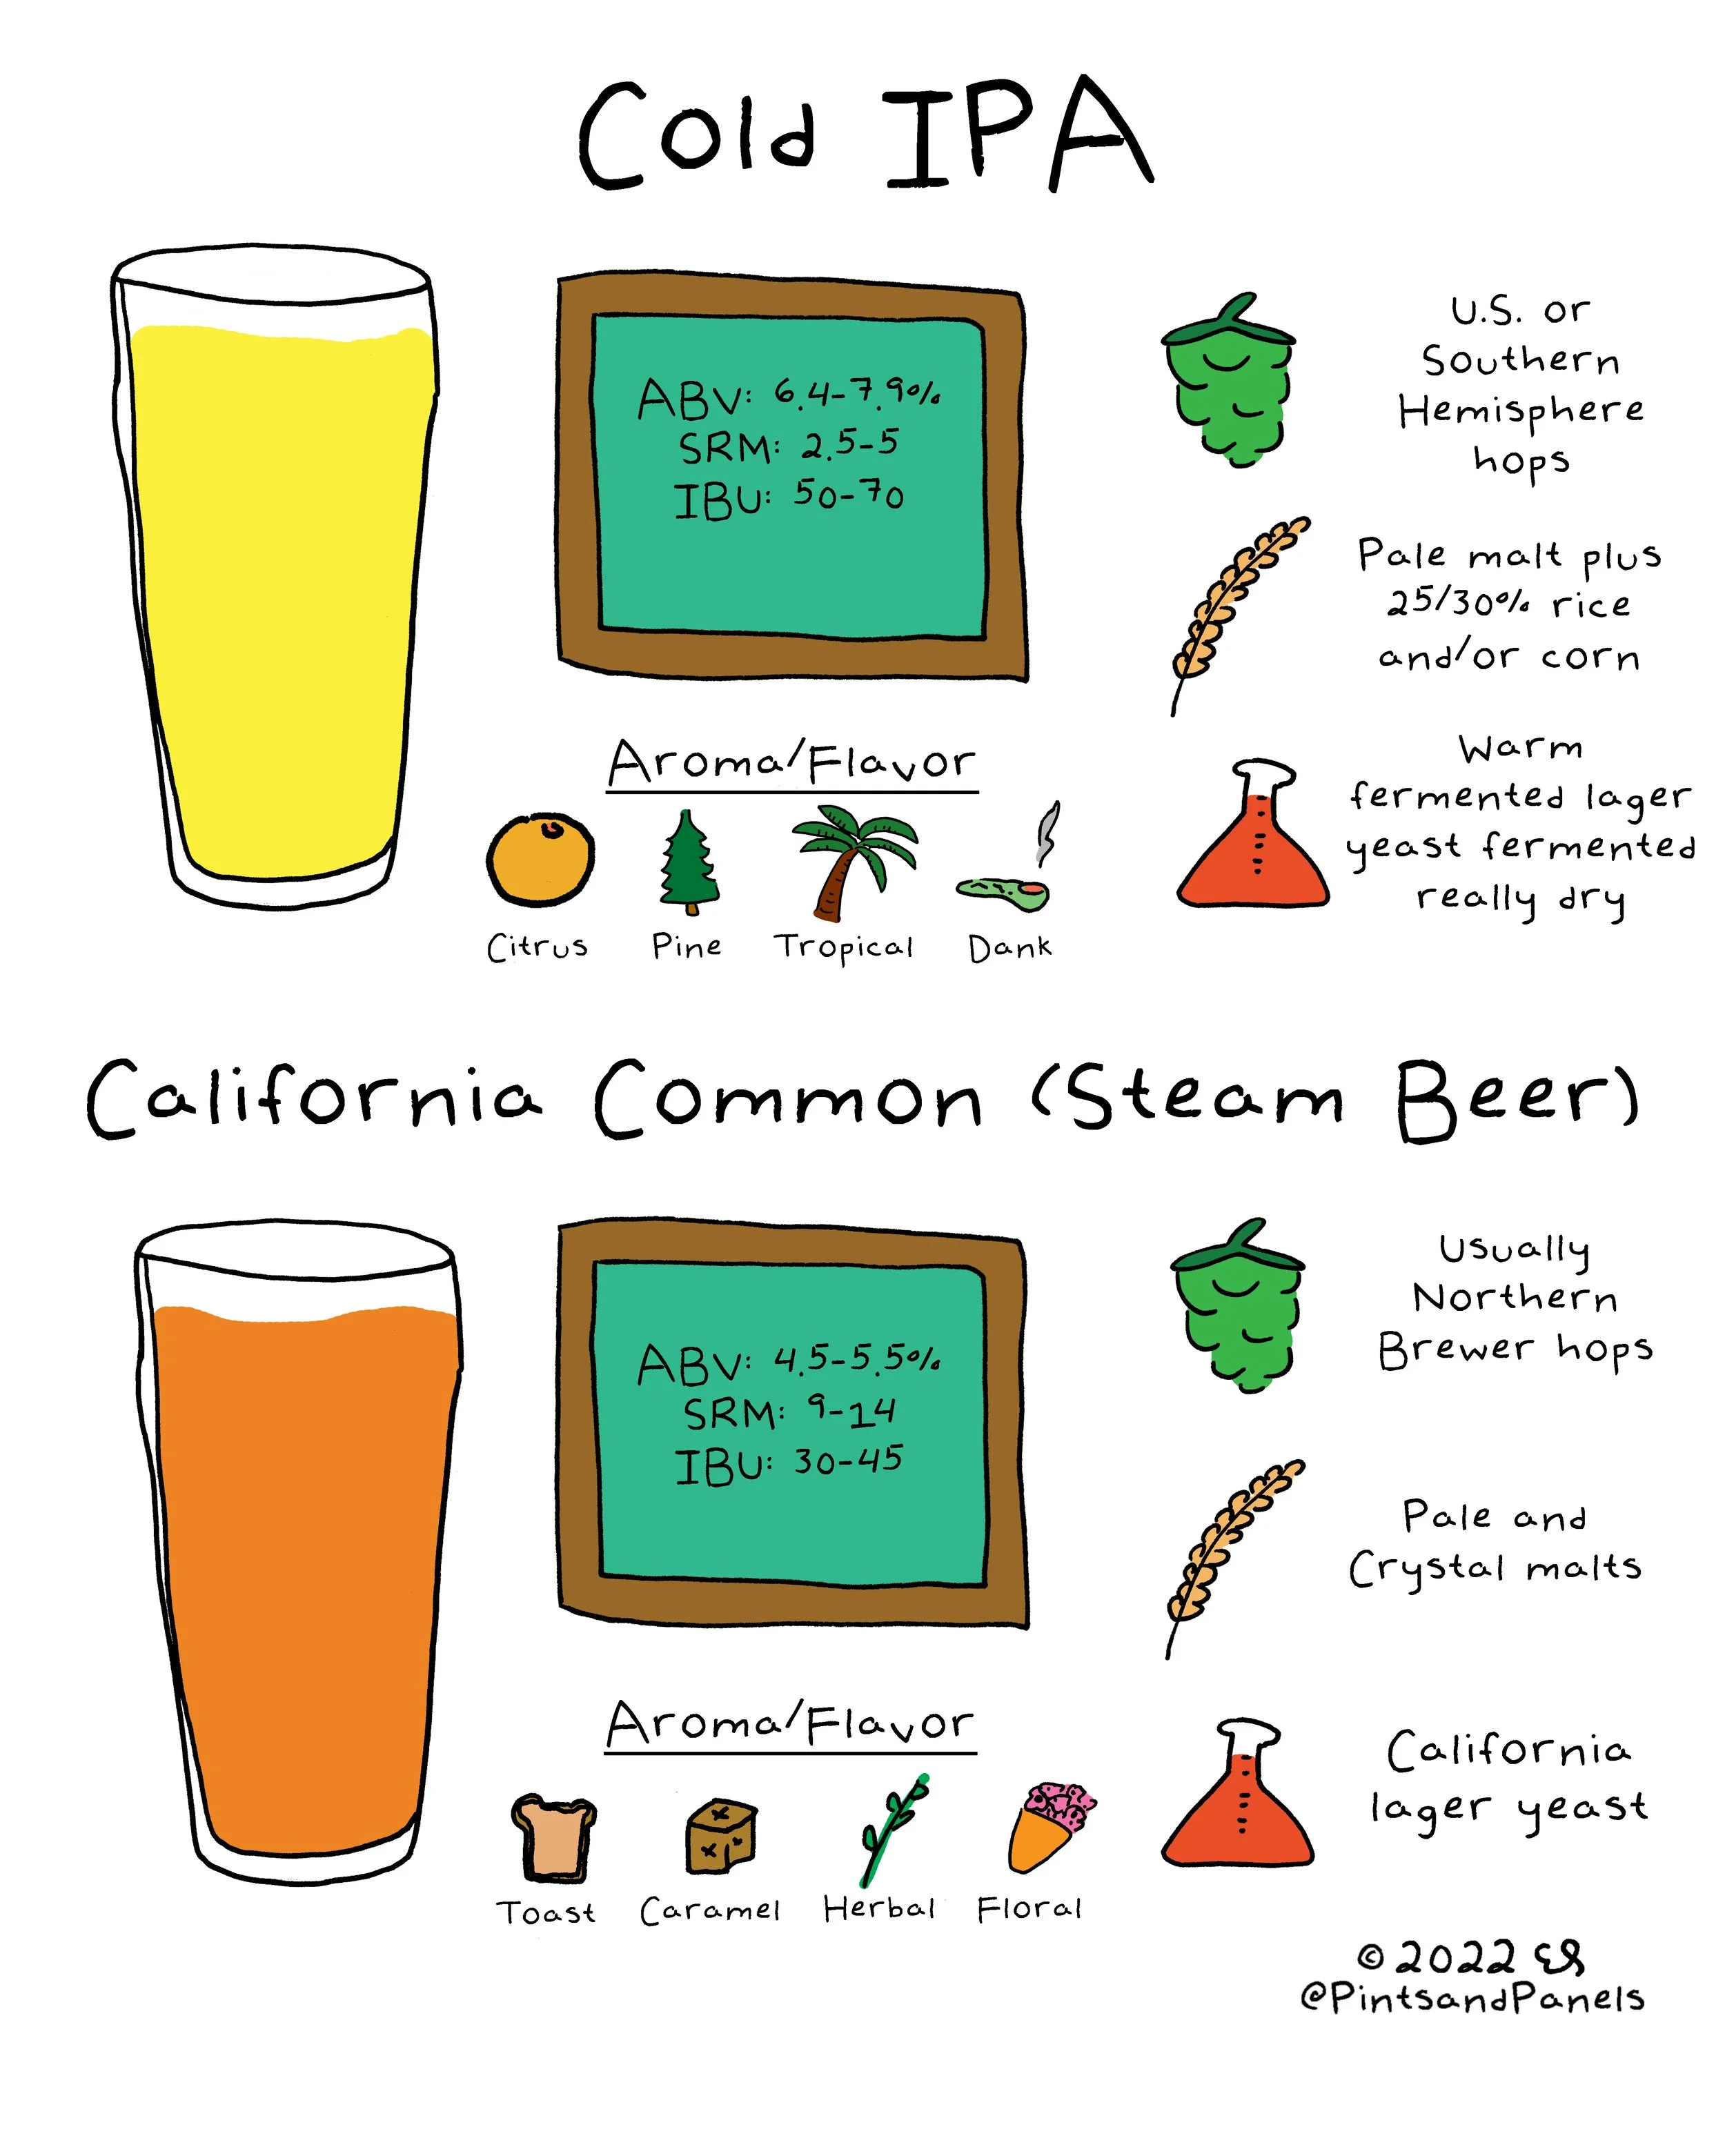 Cold IPA
ABV: 6.4-7.9%
SRM: 2.5-5
IBU: 50-70
U.S. or
Southern
Hemisphere
hops
Pale malt plus
25/30% rice
and/or corn
Warm
fermented lager
yeast fermented
really dry
Aroma/Flavor
Citrus Pine Tropical Dank
California Common (Steam Beer)
ABV: 4.5-5.5%
SRM: 9-14
IBU: 30-45
Usually
Northern
Brewer hops
Pale and
Crystal malts
California
lager yeast
Aroma/Flavor
Toast Caramel Herbal Floral
© 2022
@PintsandPanels